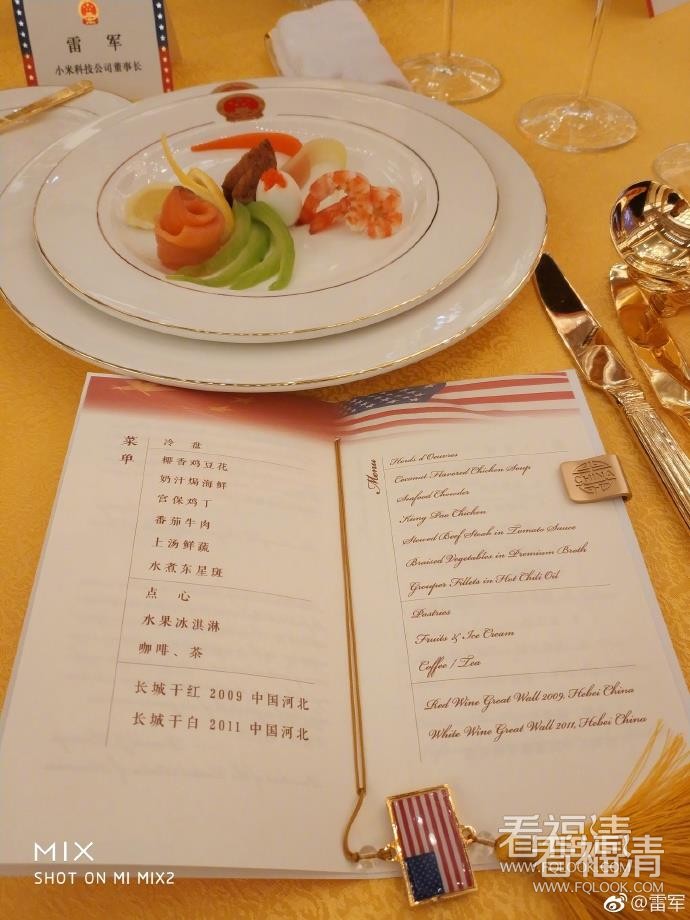 雷 军
小米科技公司董事长
菜单
冷 盘
椰香鸡豆花
奶汁焗海鲜
宫保鸡丁
番茄牛肉
上汤鲜蔬
水煮东星斑
点 心
水果冰淇淋
咖啡、茶
长城干红 2009 中国河北
长城干白 2011 中国河北
Menu
Hords d'Oeuvres
Coconut Flavored Chicken Soup
Seafood Chowder
Kung Pao Chicken
Stewed Beef Steak in Tomato Sauce
Braised Vegetables in Premium Broth
Grouper Fillets in Hot Chili Oil
Pastries
Fruits & Ice Cream
Coffee / Tea
Red Wine Great Wall 2009, Hebei China
White Wine Great Wall 2011, Hebei China
MIX
SHOT ON MI MIX2
看福清
WWW.FQLOOK.COM
看福清
WWW.FQLOOK.COM
@雷军